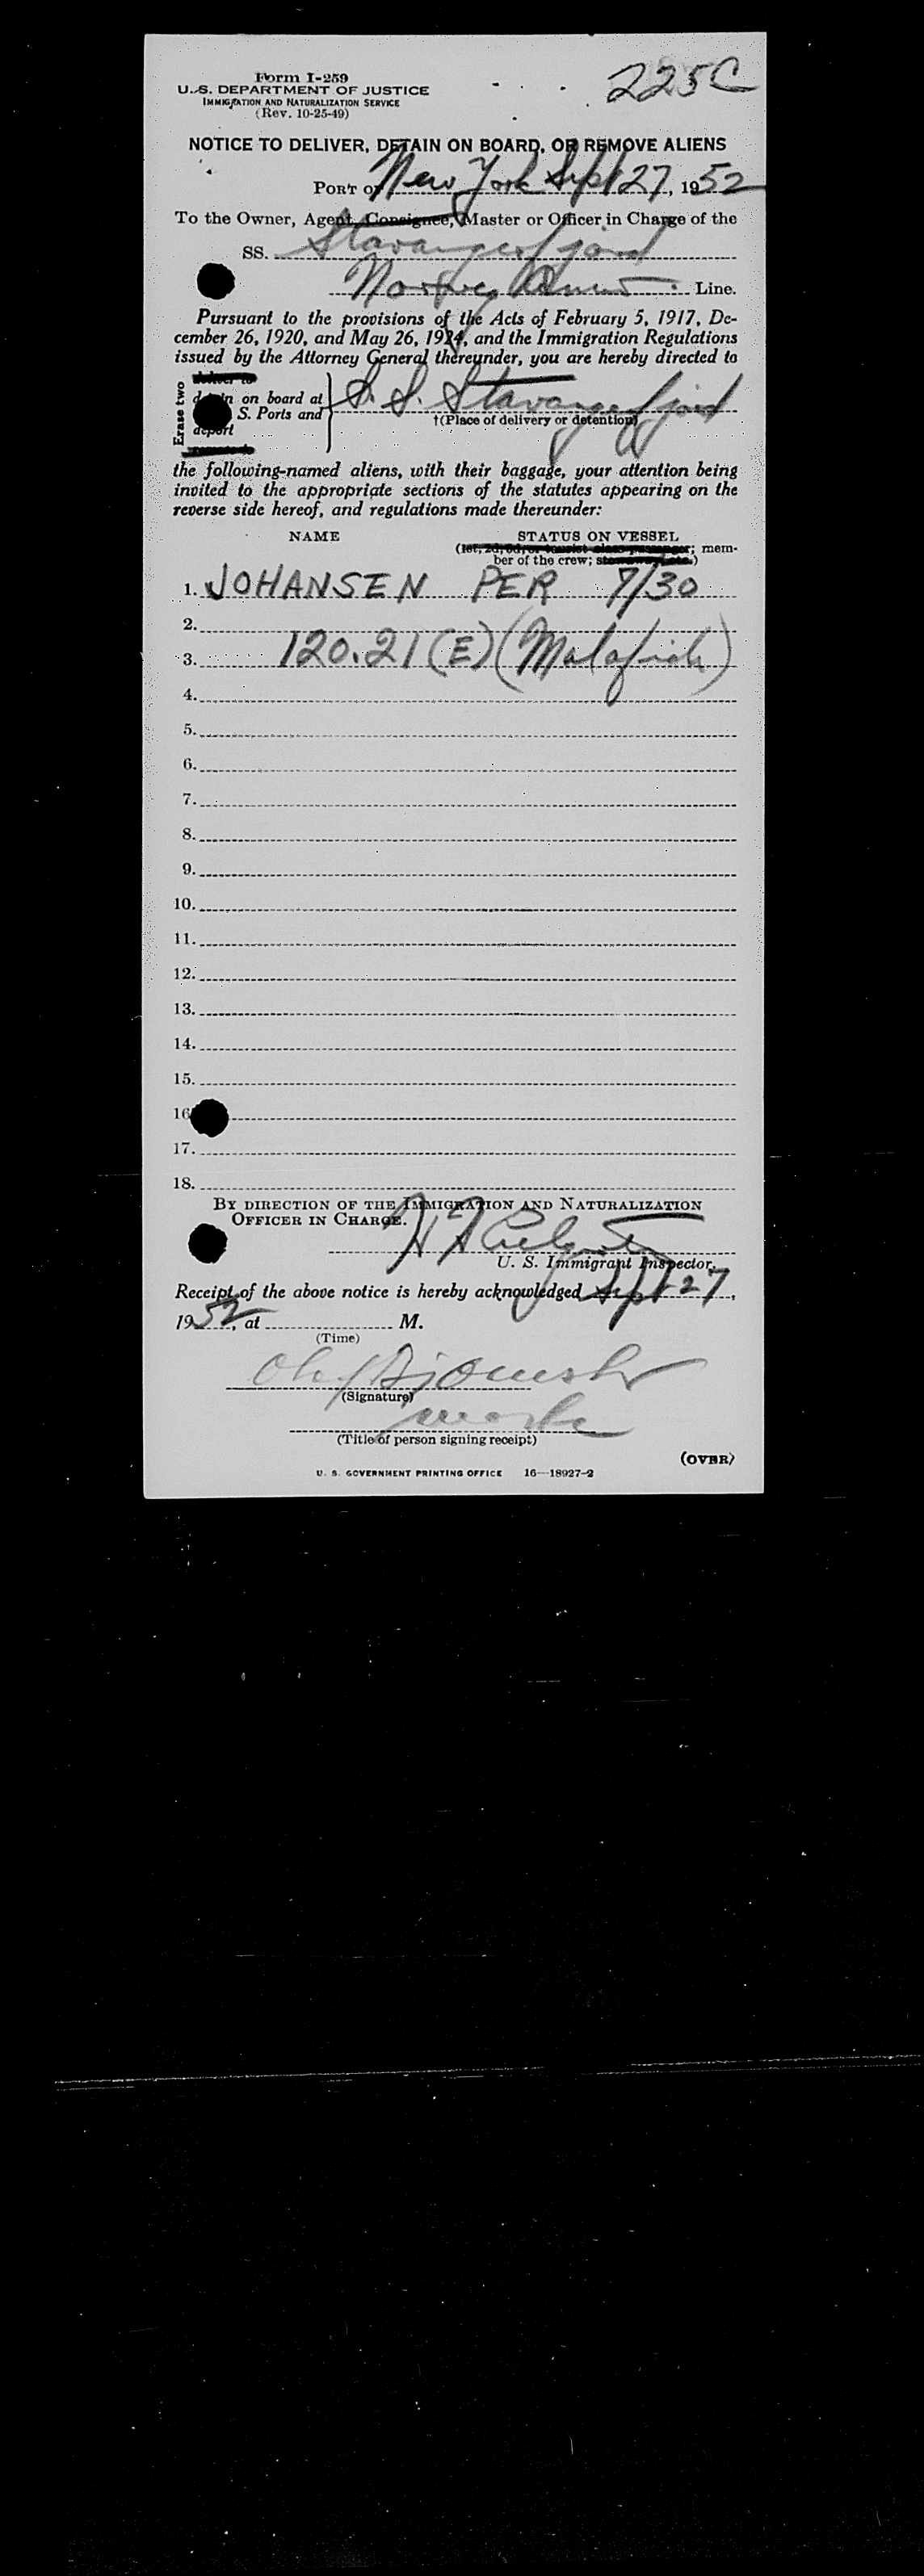 Form I-259
225C
U. S. DEPARTMENT OF JUSTICE
IMMIGRATION AND NATURALIZATION SERVICE
(Rev. 10-25-49)
NOTICE TO DELIVER, DETAIN ON BOARD, OR REMOVE ALIENS
PORT OF New York Sept 27, 1952
To the Owner, Agent, Consignee, Master or Officer in Charge of the
SS. Stavangerfjord
Norweg Amer Line.
Pursuant to the provisions of the Acts of February 5, 1917, De-
cember 26, 1920, and May 26, 1924, and the Immigration Regulations
issued by the Attorney General thereunder, you are hereby directed to
Erase two
deliver to
detain on board at
S. Ports and
deport
S. S. Stavangerfjord
†(Place of delivery or detention)
the following-named aliens, with their baggage, your attention being
invited to the appropriate sections of the statutes appearing on the
reverse side hereof, and regulations made thereunder:
NAME STATUS ON VESSEL
(1st, 2d, 3d, or tourist class passenger; mem-
ber of the crew; stowaway, etc.)
1. JOHANSEN PER 7/30
2.
3. 120.21(E) (Malafide)
4.
5.
6.
7.
8.
9.
10.
11.
12.
13.
14.
15.
16
17.
18.
BY DIRECTION OF THE IMMIGRATION AND NATURALIZATION
OFFICER IN CHARGE.
U. S. Immigrant Inspector.
Receipt of the above notice is hereby acknowledged Sept 27,
1952, at M.
(Time)
Olaf
(Signature)
(Title of person signing receipt)
(OVER)
U. S. GOVERNMENT PRINTING OFFICE 16—18927-2